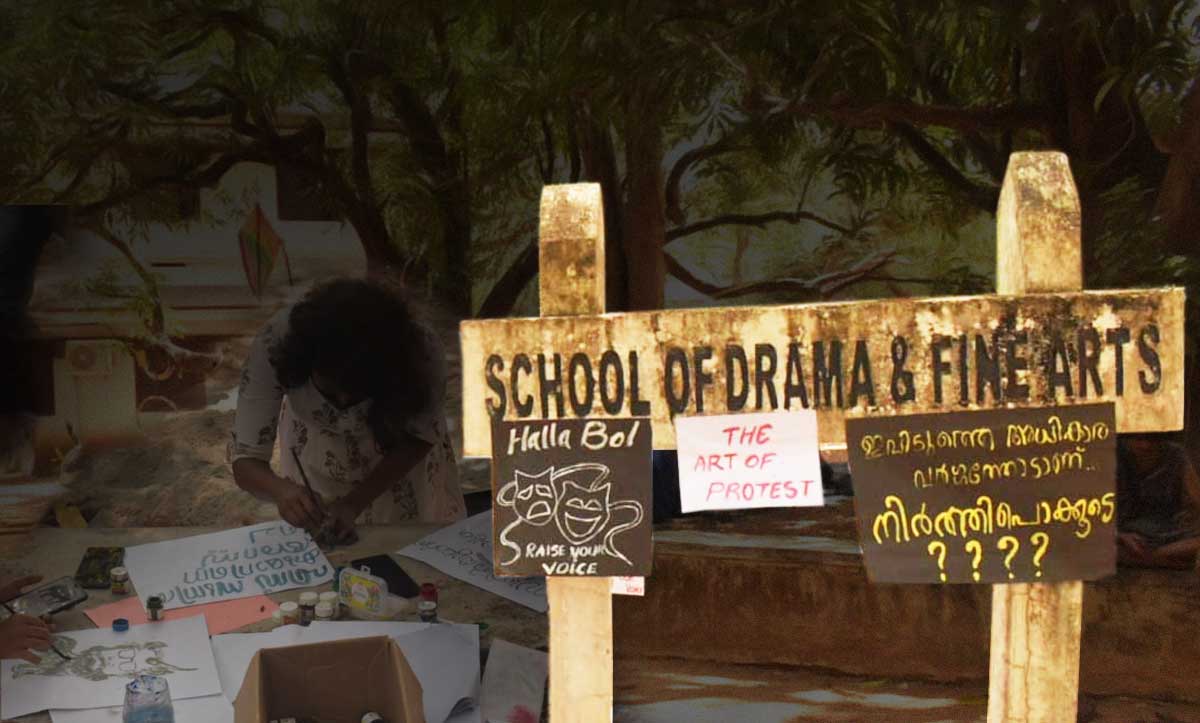 SCHOOL OF DRAMA & FINE ARTS
Halla Bol
RAISE YOUR
VOICE
THE
ART OF
PROTEST
ഇവിടുത്തെ അധികാര
വർഗത്തോടാണ്...
നിർത്തിപൊക്കൂടെ
????